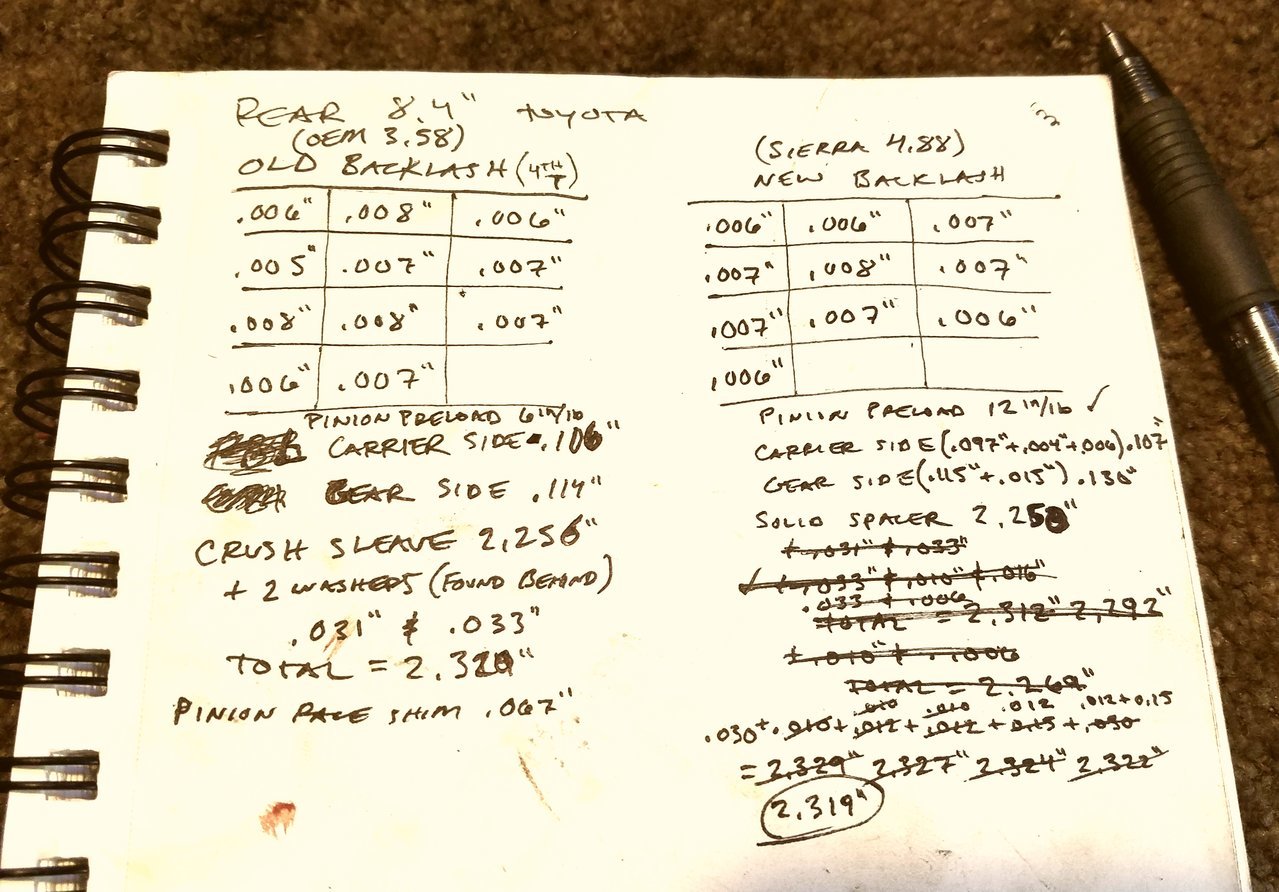 REAR 8.4" TOYOTA
(OEM 3.58)
OLD BACKLASH (4TH T)
.006" .008" .006"
.005" .007" .007"
.008" .008" .007"
.006" .007"
PINION PRELOAD 6 in/lb
CARRIER SIDE .106"
GEAR SIDE .114"
CRUSH SLEAVE 2.256"
+ 2 WASHERS (FOUND BEHIND)
.031" & .033"
TOTAL = 2.320"
PINION RACE SHIM .067"
(SIERRA 4.88)
NEW BACKLASH
.006" .006" .007"
.007" .008" .007"
.007" .007" .006"
.006"
PINION PRELOAD 12 in/lb ✓
CARRIER SIDE (.097"+.004"+.006) .107"
GEAR SIDE (.115"+.015") .130"
SOLID SPACER 2.250"
+ .031" & .033"
✓ + .033" & .010" & .016"
.033 + .006
TOTAL = 2.312" 2.292"
+ .010" & .006
TOTAL = 2.269"
.010 .010 .012 .012+0.15
.030+ .010+ .012 + .012 + 0.15 + .030
= 2.329" 2.327" 2.324" 2.322"
2.319"